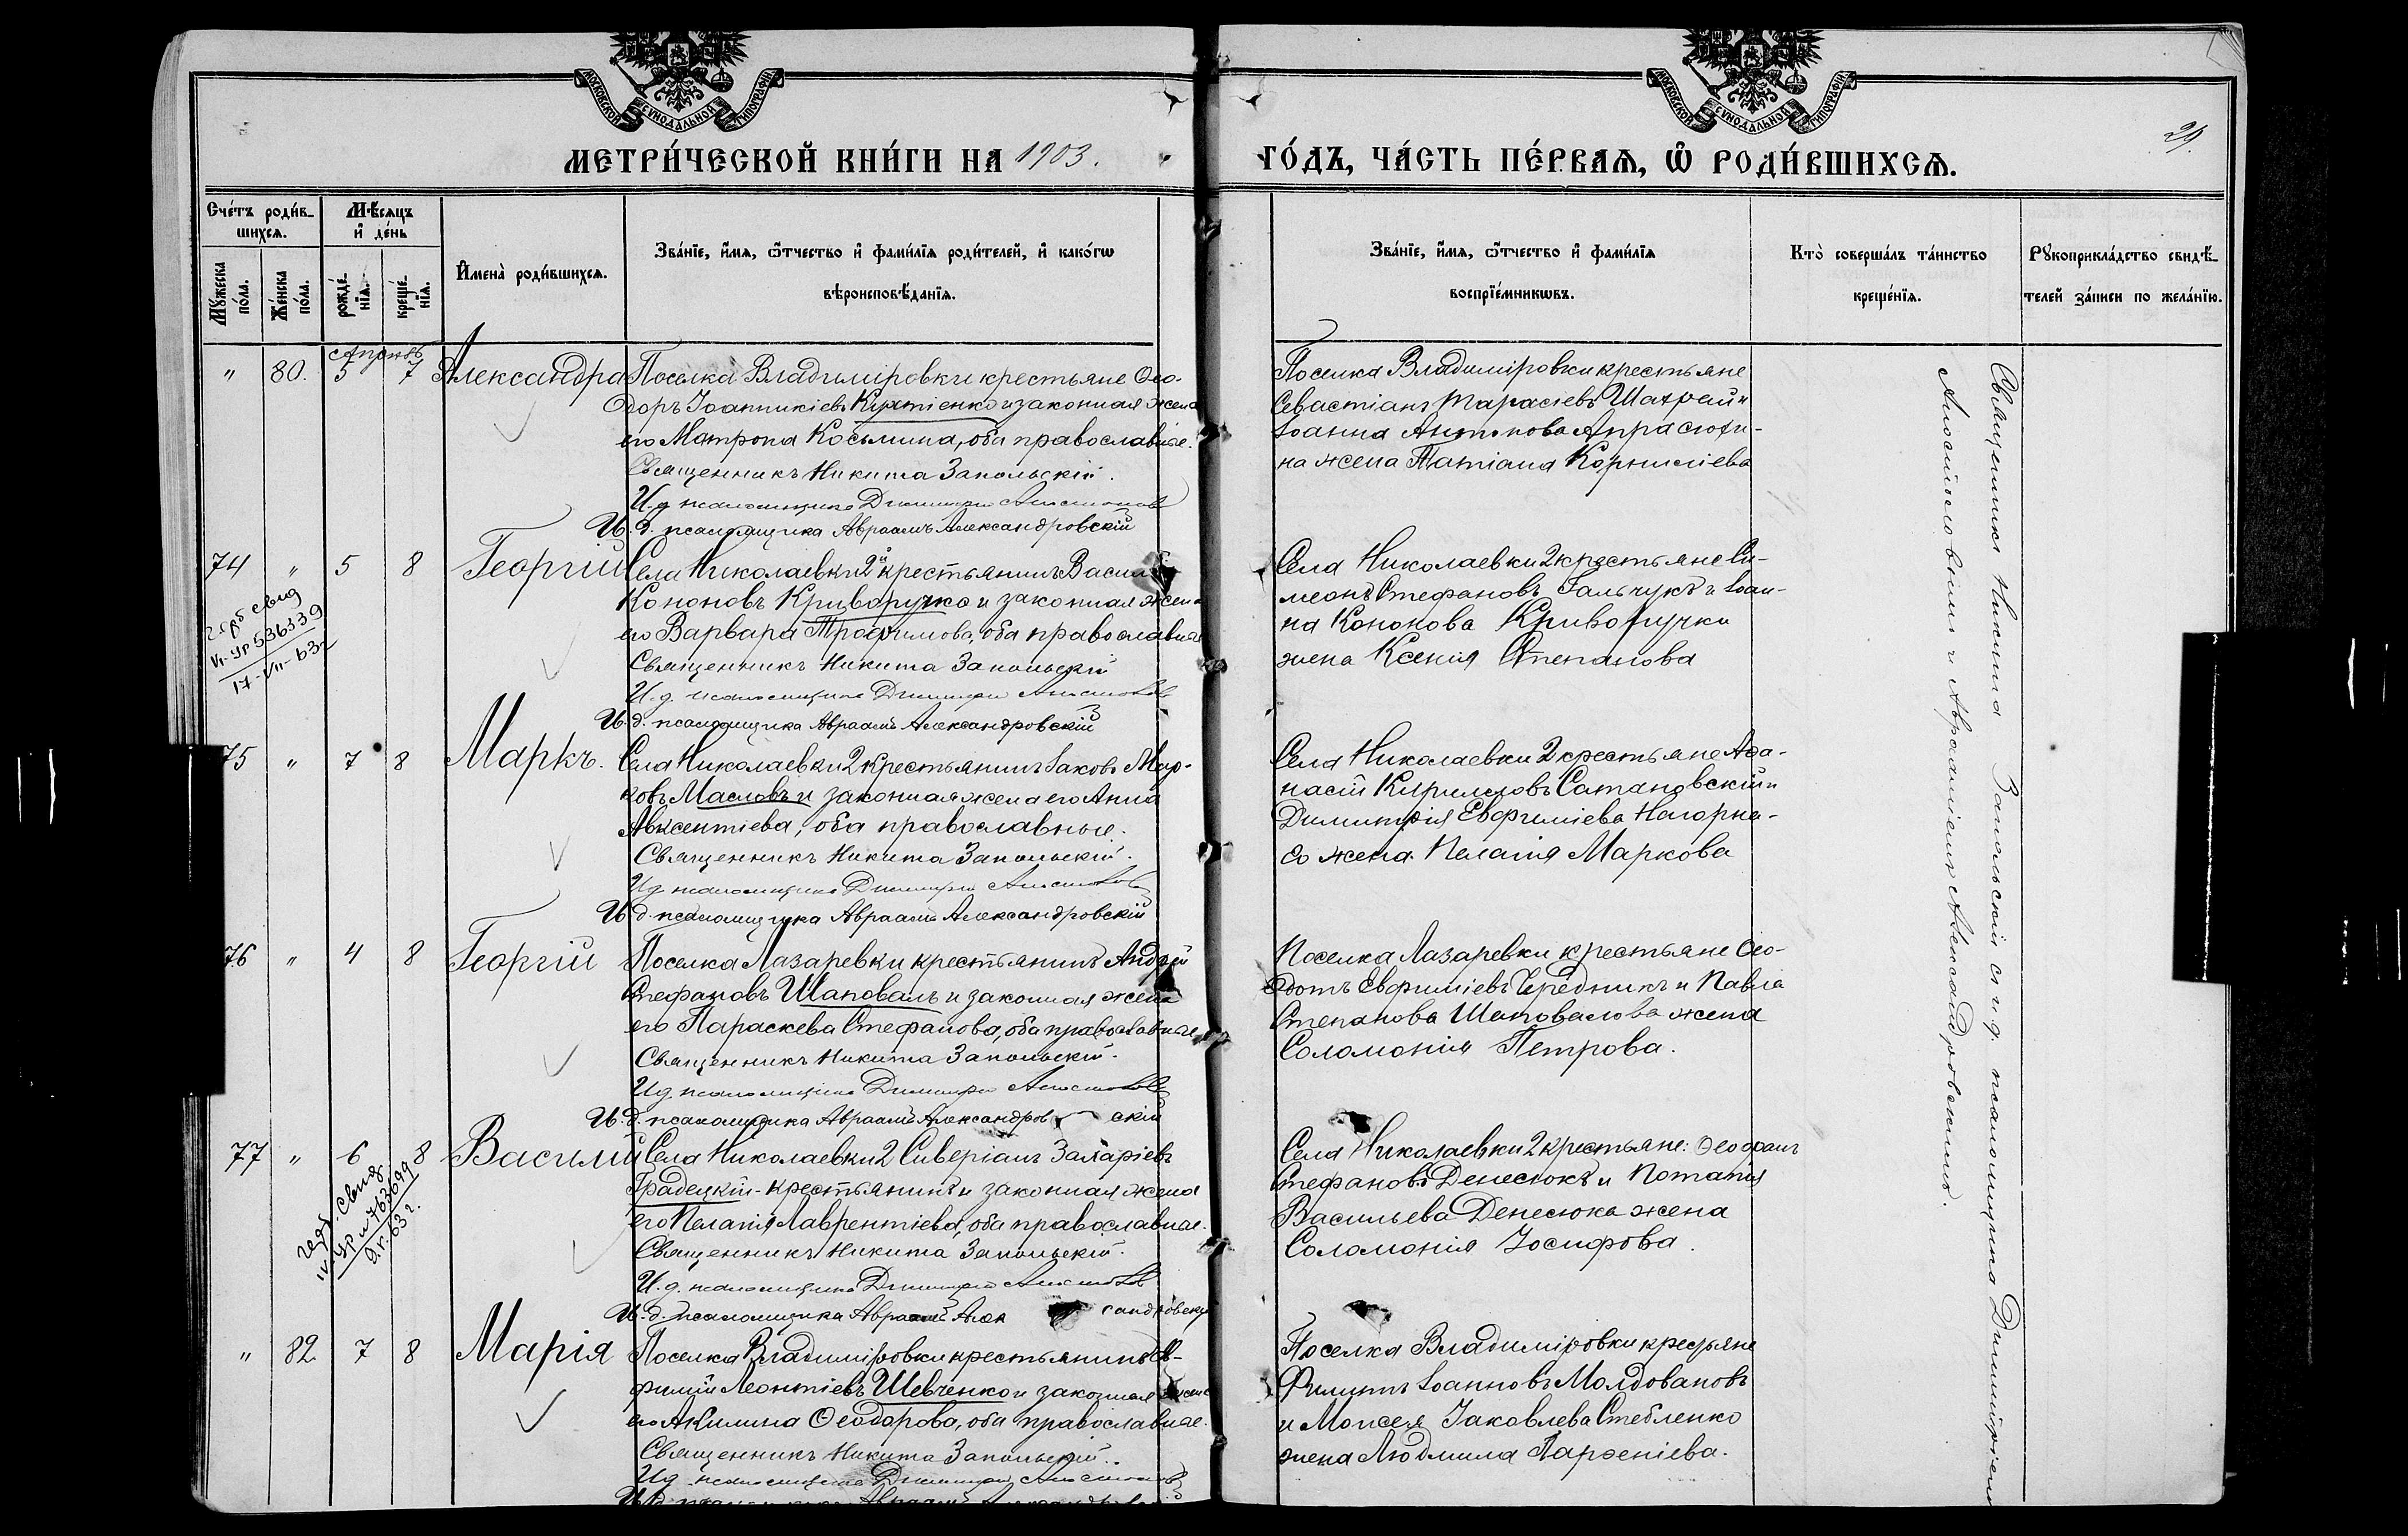 МОСКОВСКОЙ СУНОДАЛЬНОЙ ТИПОГРАФІИ
МОСКОВСКОЙ СУНОДАЛЬНОЙ ТИПОГРАФІИ
29
МЕТРИ́ЧЕСКОЙ КНИ́ГИ НА 1903.
ГО́ДЪ, ЧА́СТЬ ПЕ́РВАѦ, Ѡ҆ РОДИ́ВШИХСѦ.
Сче́тъ роди́в-
шихсѧ.
Мꙋ́жеска по́ла.
Же́нска по́ла.
Мѣ́сѧцъ
и҆ де́нь
рожде́-
нїѧ.
креще́-
нїѧ.
И҆мена̀ роди́вшихсѧ.
Зва́нїе, и҆́мѧ, ѻ҆́тчество и҆ фами́лїѧ роди́телей, и҆ како́гѡ
вѣроисповѣ́данїѧ.
Зва́нїе, и҆́мѧ, ѻ҆́тчество и҆ фами́лїѧ
воспрїе́мникѡвъ.
Кто̀ соверша́лъ та́инство
креще́нїѧ.
Рꙋкоприкла́дство свидѣ́-
телей за́писи по жела́нїю.
Апрѣль
" 80. 5 7 Александра
Поселка Владиміровки крестьяне Ѳео-
доръ Іоанникіевъ и законная жена
его Матрона Косьмина, оба православные.
Священникъ Никита Запольскій.
И. д. псаломщика Димитрій
И. д. псаломщика Авраамъ Александровскій
Поселка Владиміровки крестьяне
Севастіанъ Тарасіевъ и
Іоанна Антонова
на жена Татіана Корниліева
74 " 5 8 Георгій
Села Николаевки 2й крестьянинъ Васи
Кононовъ Криворучко и законная жена
его Варвара Трофимова, оба православные
Священникъ Никита Запольскій
И. д. псаломщика Димитрій
И. д. псаломщика Авраамъ Александровскій
536339
17-VII-63г
Села Николаевки 2 крестьяне Си-
меонъ Стефановъ Гальчукъ и Іоан-
на Кононова Криворучки
жена Ксенія Степанова
75 " 7 8 Маркъ.
Села Николаевки 2 крестьянинъ Іаковъ Мар-
ковъ Масловъ и законная жена его Анна
Авксентіева, оба православные.
Священникъ Никита Запольскій.
И. д. псаломщика Димитрій
И. д. псаломщика Авраамъ Александровскій
Села Николаевки 2 крестьяне Аѳа-
насій Кирилловъ Сатановскій и
Димитрія Евфиміева Нагорна-
го жена Пелагія Маркова
76 " 4 8 Георгій
Поселка Лазаревки крестьянинъ Андрей
Стефановъ Шаповалъ и законная жена
его Параскева Стефанова, оба православные
Священникъ Никита Запольскій.
И. д. псаломщика Димитрій
И. д. псаломщика Авраамъ Александров скій
Поселка Лазаревки крестьяне Ѳео-
дотъ Евфиміевъ Чередникъ и Павла
Степанова Шаповалова жена
Соломонія Петрова.
77 " 6 8 Василій
Села Николаевки 2 Сиверіанъ Захаріевъ
Градецкій - крестьянинъ и законная жена
его Пелагія Лаврентіева, оба православные.
Священникъ Никита Запольскій.
И. д. псаломщика Димитрій
И. д. псаломщика Авраамъ Алек сандровскій
63 г.
Села Николаевки 2 крестьяне: Ѳеофанъ
Стефановъ Денесюкъ и
Васильева Денесюка жена
Соломонія Іосифова.
" 82 7 8 Марія
Поселка Владиміровки крестьянинъ Ев-
фимій Леонтіевъ Шевченко и законная жена
его Акилина Ѳеодорова, оба православные.
Священникъ Никита Запольскій.
И. д. псаломщика Димитрій
Поселка Владиміровки крестьяне
Филиппъ Іоанновъ Молдовановъ
и Моисея Іаковлева Стебленко
жена Людмила Парѳеніева.
Священникъ Никита Запольскій съ и. д. псаломщика Димитріемъ
и Авраамомъ Александровскимъ.